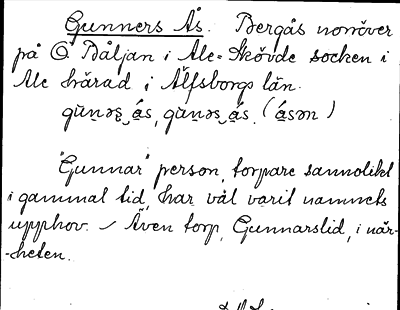 Gunners Ås. Bergås norröver
på Ö Båljan i Ale-Skövde socken i
Ale härad i Älfsborgs län.
gu̅nəs̬ ás, gu̅nəs̬ ás. (ásən)
"Gunnar" person, torpare sannolikt
i gammal tid, har väl varit namnets
upphov. – Även torp, Gunnarslid, i när-
-heten.